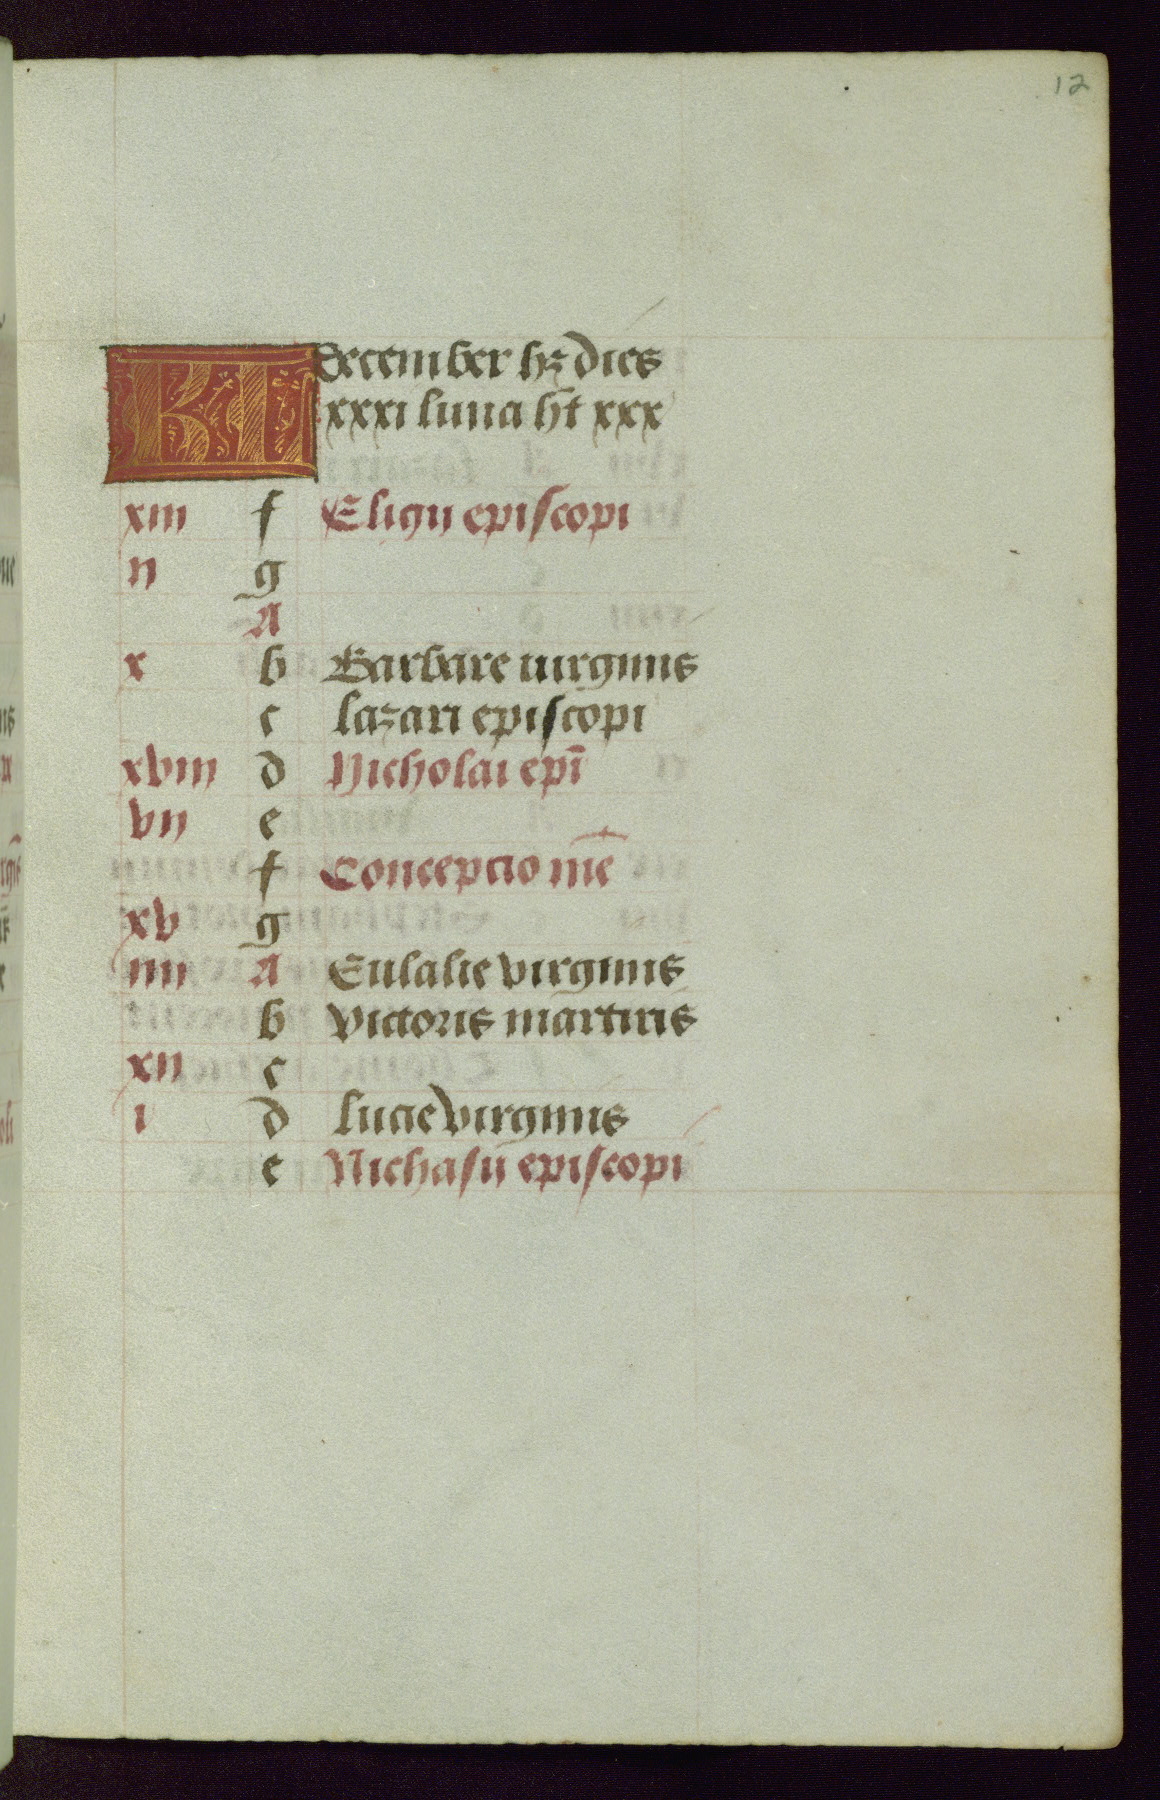 12
KL December hꝫ dies
xxxi luna ht xxx
xiii f Eligii episcopi
ii g
A
x b Barbare uirginis
c lazari episcopi
xviii d Nicholai epī
vii e
f Concepcio m̄e
xv g
iiii A Eulalie virginis
b victoris martiris
xii c
i d lucie virginis
e Nichasii episcopi